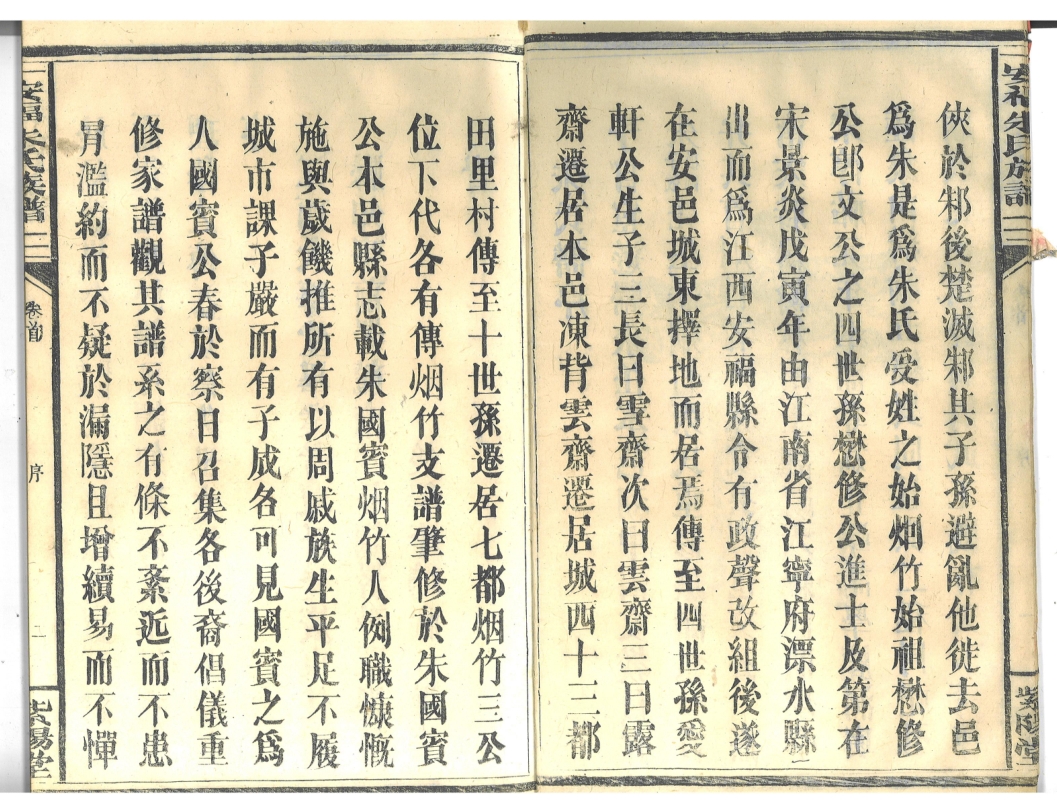 安福朱氏族譜
俠於邾後楚滅邾其子孫避亂他徙去邑
爲朱是爲朱氏受姓之始烟竹始祖懋修
公卽文公之四世孫懋修公進士及第在
宋景炎戊寅年由江南省江寧府溧水縣
出而爲江西安福縣令有政聲改組後遂
在安邑城東擇地而居焉傳至四世孫愛
軒公生子三長曰雪齋次曰雲齋三曰露
齋遷居本邑凍背雲齋遷居城西四十三都
紫陽堂
田里村傳至十世孫遷居七都烟竹三公
位下代各有傳烟竹支譜肇修於朱國賓
公本邑縣志載朱國賓烟竹人例職慷慨
施與歲饑推所有以周戚族生平足不履
城市課子嚴而有子成各可見國賓之爲
人國賓公春於察日召集各後裔倡儀重
修家譜觀其譜系之有條不紊近而不患
冐濫約而不疑於漏隱且增續易而不憚
安福朱氏族譜
卷首
序
二
紫陽堂